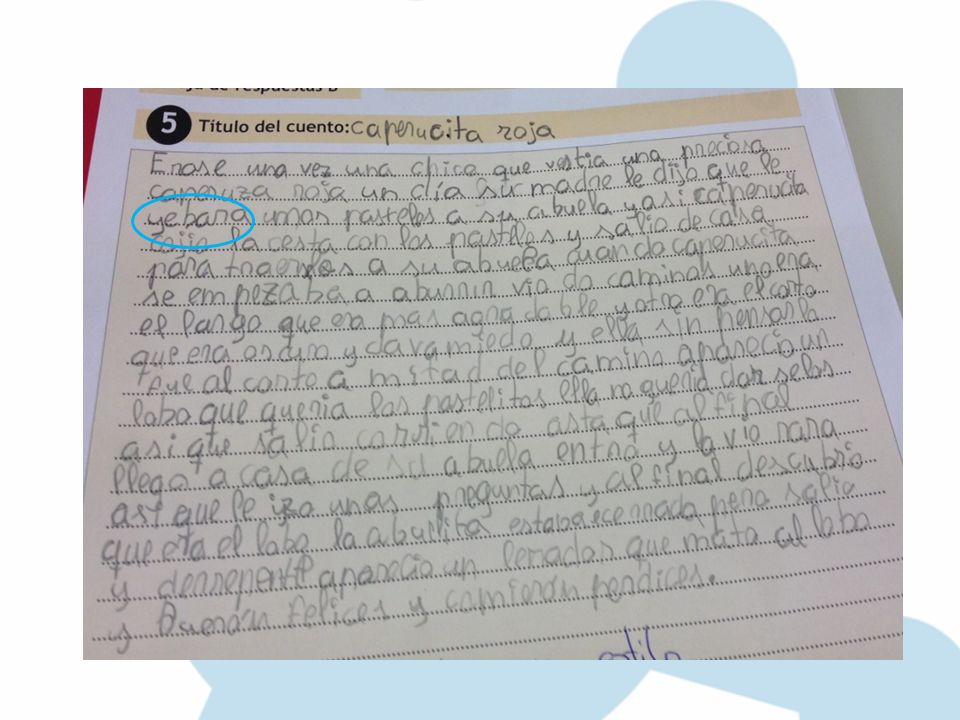 ja de respuestas B
5 Título del cuento: caperucita roja
Erase una vez una chica que vestia una preciosa
caperuza roja un día su madre le dijo que le
yebara unos pasteles a su abuela y asi caperucita
cojio la cesta con los pasteles y salio de casa
para traerlos a su abuela cuando caperucita
se empezaba a aburrir vio do caminos uno era
el largo que era mas agradable y otro era el corto
que era oscuro y dava miedo y ella sin pensarlo
fue al corto a mitad del camino aparecio un
lobo que queria los pastelitos ella no queria darselos
asi que salio corriendo asta que al final
llego a casa de su abuela entró y la vio rara
asi que le izo unas preguntas y al final descubrio
que era el lobo la abuilita estaba ecerrada pero salio
y derrepente aparecio un leñador que mata al lobo
y fueron felices y comieron perdices.
estilo